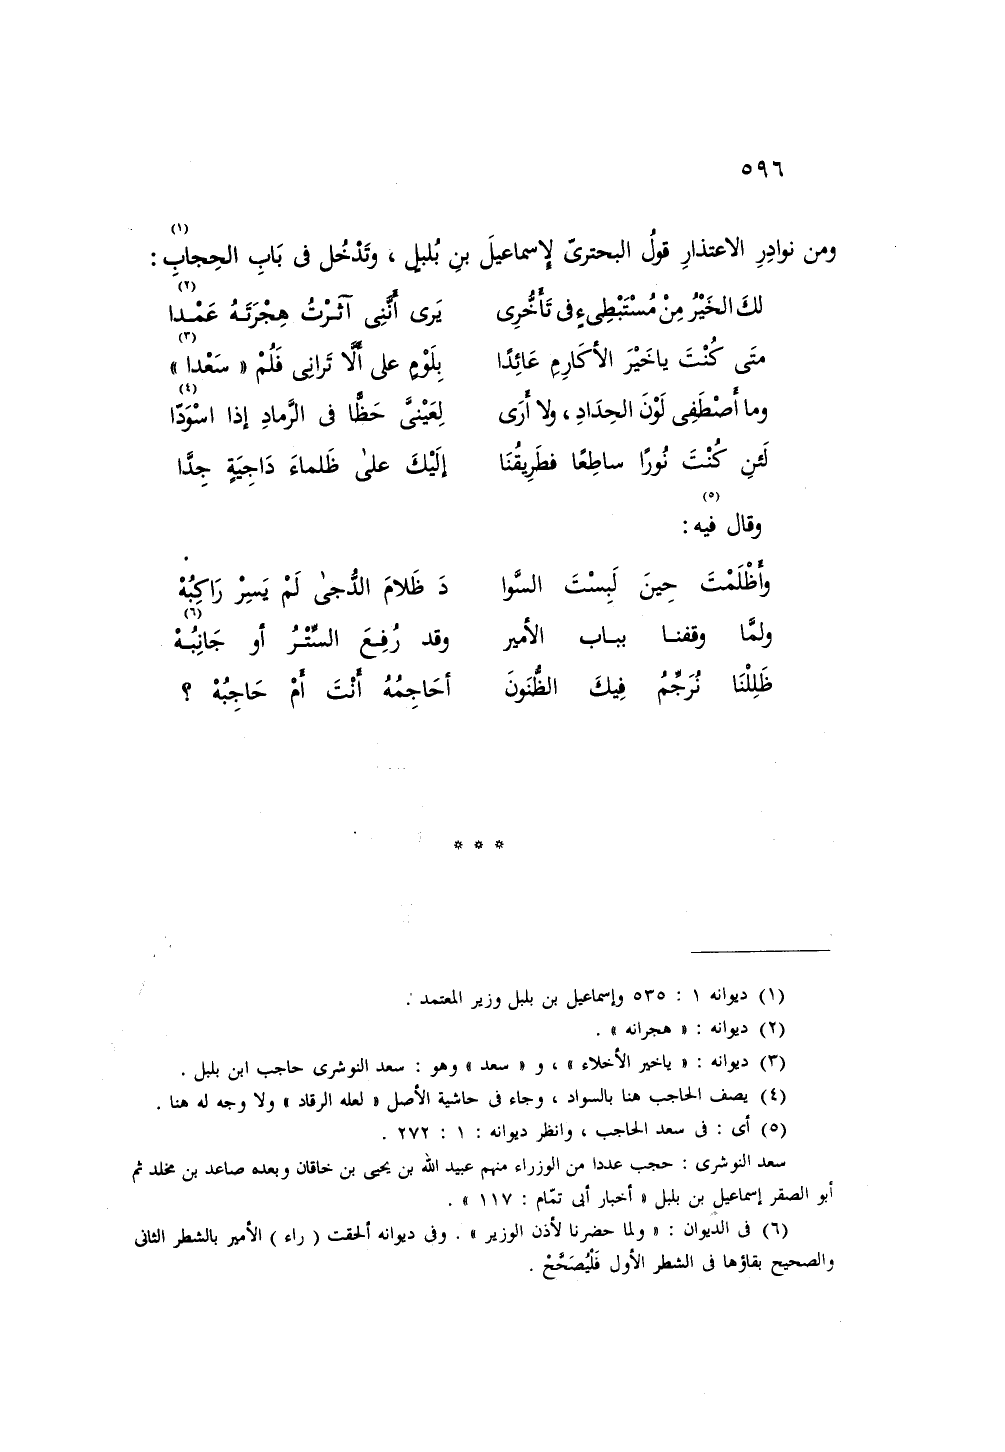 ٥٩٦
ومن نوادِرِ الاعتذارِ قولُ البحترىّ لإسماعيلَ بنِ بُلبلٍ ، وتَدْخُل فى بَابِ الحِجابِ (١) :
لكَ الخَيْرُ مِنْ مُسْتَبْطِىءٍ فى تَأَخُّرِى يَرى أَنَّنِى آثَرْتُ هِجْرَتَهُ عَمْدا (٢)
متَى كُنْتَ ياخَيْرَ الأكَارِمِ عَائِدًا بِلَوْمٍ على أَلَّا تَرانِى فَلُمْ « سَعْدا » (٣)
وما أَصْطَفِى لَوْنَ الحِدَادِ ، ولا أَرَى لِعَيْنىَّ حَظًّا فى الرَّمادِ إذا اسْوَدّا (٤)
لَئنِ كُنْتَ نُورًا ساطِعًا فطَرِيقُنَا إلَيْكَ علىٰ ظَلماءَ دَاجِيَةٍ جِدَّا
وقال فيه (٥) :
وأَظْلَمْتَ حِينَ لَبِسْتَ السَّوا دَ ظَلامَ الدُّجىٰ لَمْ يَسِرْ رَاكِبُهْ
ولمَّا وقفنا بباب الأمير وقد رُفِعَ السِّتْرُ أو جَانِبُهْ (٦)
ظَلِلْنَا نُرَجِّمُ فِيكَ الظُّنَونَ أحَاجِمُهُ أَنْتَ أَمْ حَاجِبُهْ ؟
* * *
(١) ديوانه ١ : ٥٣٥ وإسماعيل بن بلبل وزير المعتمد .
(٢) ديوانه : « هجرانه » .
(٣) ديوانه : « ياخير الأخلاء » ، و « سعد » وهو : سعد النوشرى حاجب ابن بلبل .
(٤) يصف الحاجب هنا بالسواد ، وجاء فى حاشية الأصل « لعله الرقاد » ولا وجه له هنا .
(٥) أى : فى سعد الحاجب ، وانظر ديوانه : ١ : ٢٧٢ .
سعد النوشرى : حجب عددا من الوزراء منهم عبيد الله بن يحيى بن خاقان وبعده صاعد بن مخلد ثم
أبو الصقر إسماعيل بن بلبل « أخبار أبى تمّام : ١١٧ » .
(٦) فى الديوان : « ولما حضرنا لأذن الوزير » . وفى ديوانه ألحقت ( راء ) الأمير بالشطر الثانى
والصحيح بقاؤها فى الشطر الأول فَلْيُصَحَّحْ .